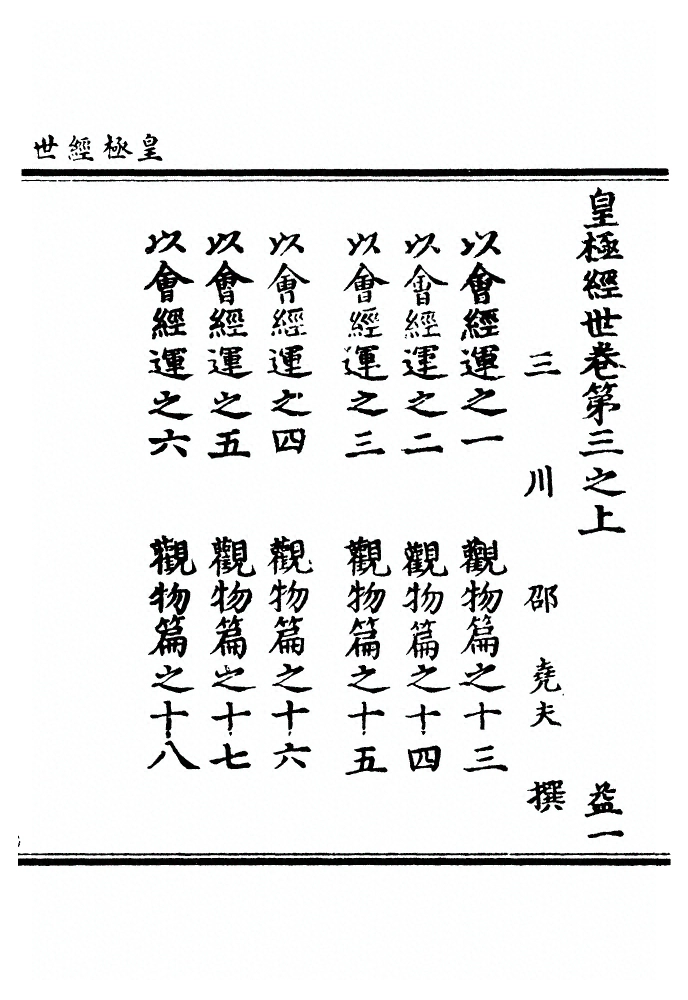 皇極經世
皇極經世卷第三之上 益一
三川邵堯夫撰
以會經運之一 觀物篇之十三
以會經運之二 觀物篇之十四
以會經運之三 觀物篇之十五
以會經運之四 觀物篇之十六
以會經運之五 觀物篇之十七
以會經運之六 觀物篇之十八